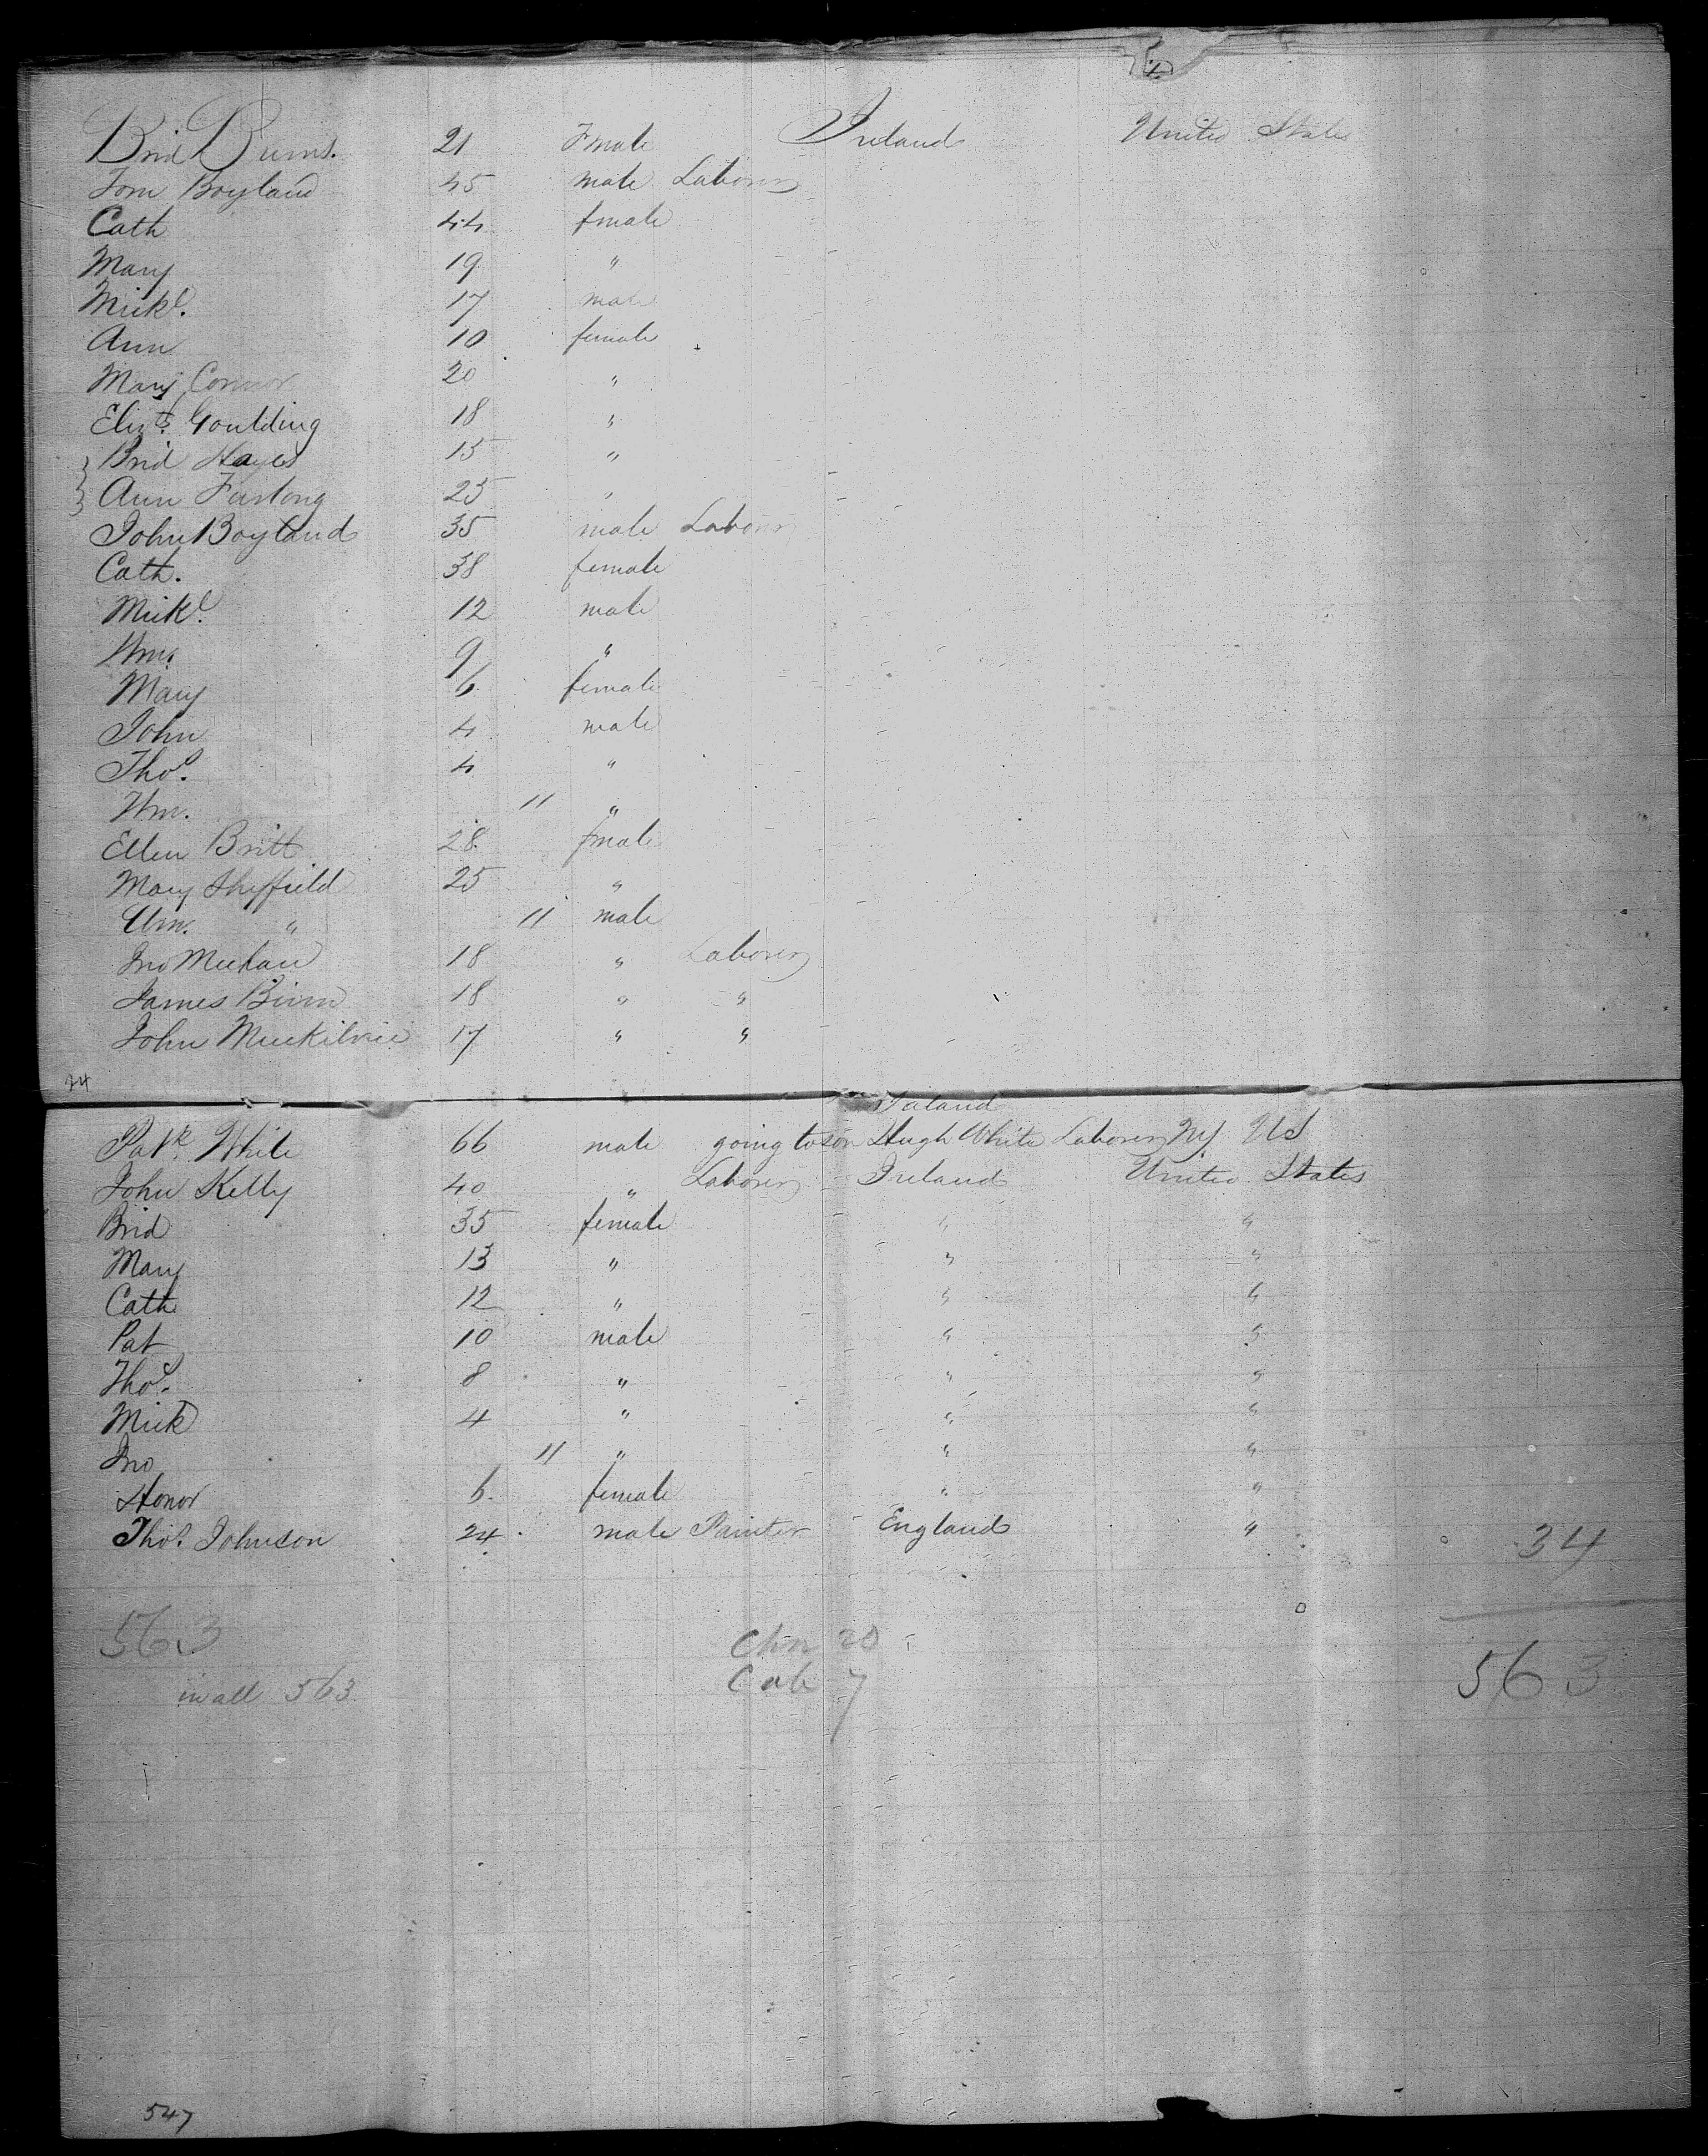 Brid Burns. 21 Fmale Ireland United States
Tom Boyland 45 male Laborer
Cath 44 fmale
Mary 19 "
Mickl. 17 male
Ann 10 female
Mary Connor 20 "
Elizth. Goulding 18 "
Brid Hayes 15 "
Ann Furlong 25 "
John Boyland 35 male Laborer
Cath. 38 female
Mickl. 12 male
Wm. 9 "
Mary 6 female
John 4 male
Thos. 4 "
Wm. 11 "
Ellen Britt 28 fmale
Mary Sheffield 25 "
Wm. " 11 male
Jno Meehan 18 " Laborer
James Binn 18 " "
John 17 " "
24
Ireland
Patk. White 66 male going to son Hugh White Laborer NY US
John Kelly 40 " Laborer Ireland United States
Brid 35 female " "
Mary 13 " " "
Cath 12 " " "
Pat 10 male " "
Thos. 8 " " "
Mick 4 " " "
Jno 11 " " "
Honor 6 female " "
Thos. Johnson 24 male Painter England "
34
563 Chn 20
in all 563 Cab 7 563
547